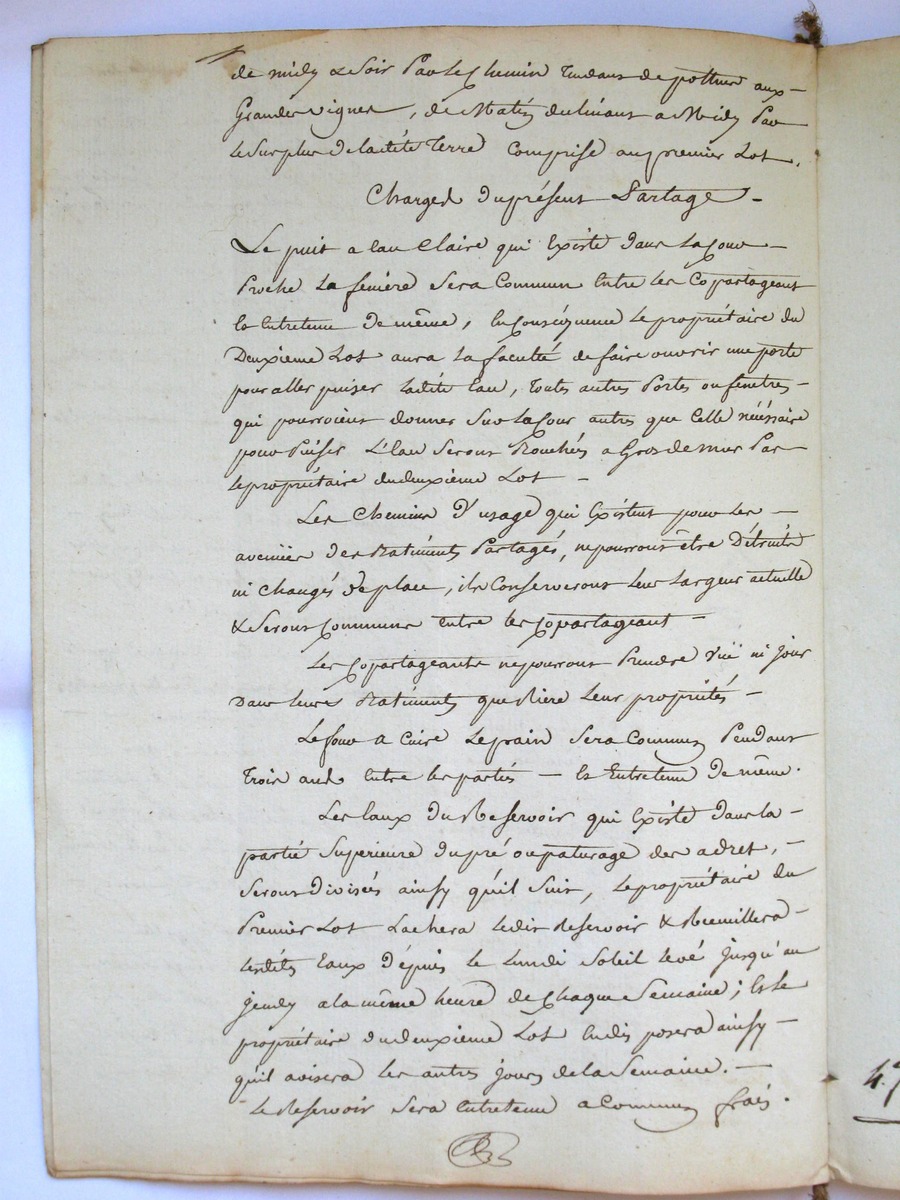 de midy & soir Par le Chemin tendant de pothier aux
Grandes vignes, de Matin declinant a Midy Par
le surplus de ladite Terre Comprise au premier Lot.
Charges du présent Partage -
Le puit a eau Claire qui Existe dans la Cour
Proche la feniére Sera Commun Entre les Copartageant
& Entretenu de même, En Conséquence le propriétaire du
Deuxieme Lot aura la faculté de faire ouvrir une porte
pour aller puiser ladite Eau, toutes autres Portes ou fenetres
qui pourroient donner Sur la Cour autres que Celle nécéssaire
pour Puiser L'Eau Seront Bouchés a Gros de mur Par
le propriétaire du deuxieme Lot -
Les Chemins d'usage qui Existent pour les
avenües des Batiments Partagés, ne pourront être Détruits
ni Changés de place, ils Conserveront leur Largeur actuelle
& Seront Communs entre les Copartageant -
Les Copartageants ne pourront Prendre vüe ni jour
Dans leurs Batiments que Riere Leur propriétés -
Le four a Cuire Le pain Sera Commun Pendant
trois ans Entre les partés - & Entretenu De même.
Les Eaux du Reservoir qui Existe dans la
partie Superieure du pré ou paturage des adret, -
Seront divisées ainsy qu'il Suit, Le propriétaire du
Premier Lot Lachera Ledit Reservoir & Recuillera
Lesdites Eaux Dépuis Le Lundi Soleil Levé jusqu'au
jeudy a la même heure de Chaque Semaine; Et le
propriétaire du deuxieme Lot En disposera ainsy
qu'il avisera les autres jours de la Semaine. -
Le Reservoir Sera Entretenu a Communs frais.